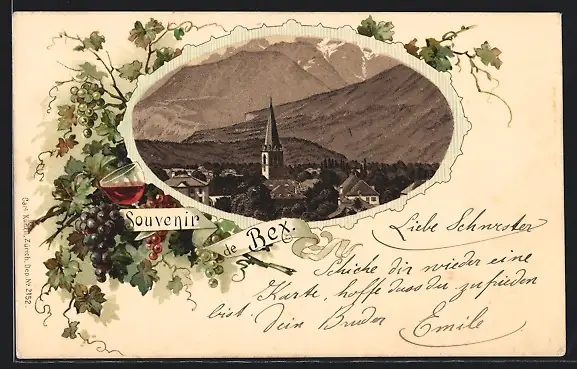 Souvenir
de Bex.
Liebe Schwester
Schicke dir wieder eine
Karte, hoffe dass du zufrieden
bist. Dein Bruder Emile
Carl Künzli, Zürich. Dep. Nr. 2152